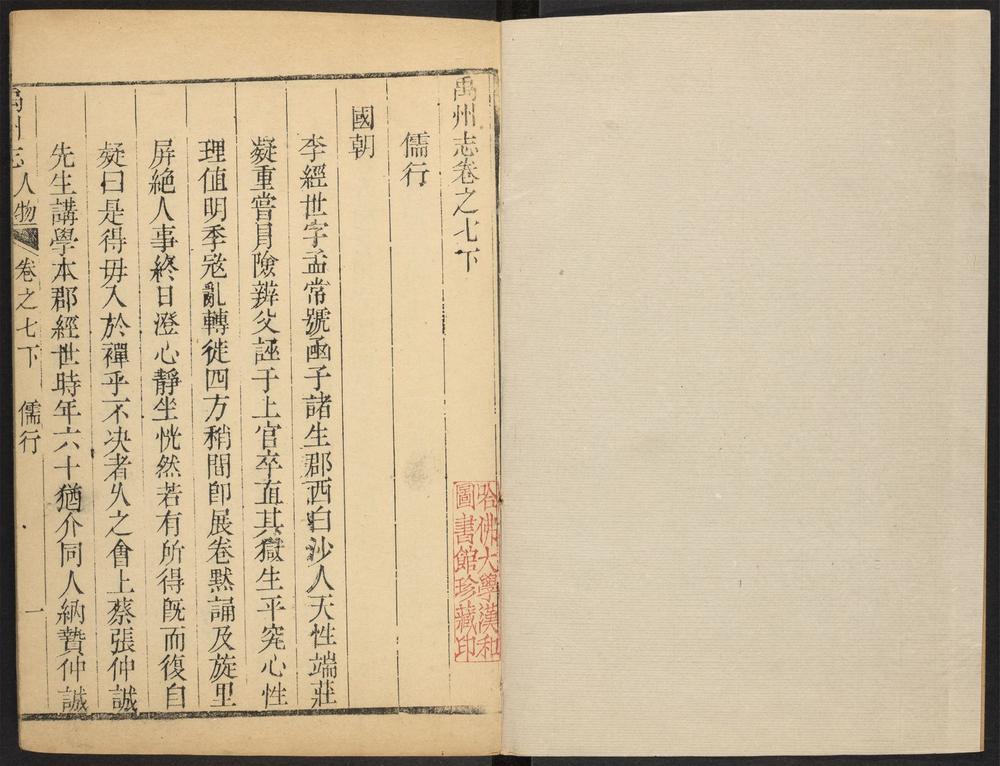 禹州志卷之七下
儒行
國朝
李經世字孟常號函子諸生郡西白沙人天性端莊
凝重嘗冐險辨父誣于上官卒直其獄生平究心性
理值明季寇亂轉徙四方稍間即展卷默誦及旋里
屏絶人事終日澄心靜坐恍然若有所得旣而復自
疑曰是得毋入於禪乎不决者久之會上蔡張仲誠
先生講學本郡經世時年六十猶介同人納贄仲誠
禹州志人物 卷之七下 儒行 一
哈佛大學漢和
圖書館珍藏印